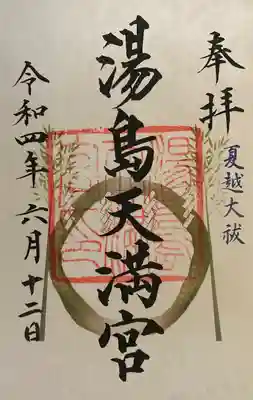 奉拝
夏越大祓
湯島天満宮
令和四年六月十二日